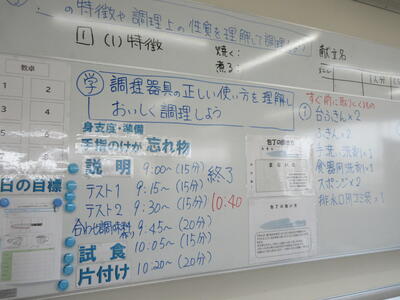 の特徴や調理上の性質を理解して調理しよう
1 (1)特徴
焼く:
煮る:
献立名
教卓
1 2
3 4
5 6
学 調理器具の正しい使い方を理解し
おいしく調理しよう
身支度・準備
手指のけが 忘れ物
説明 9:00~(15分) 終了
テスト1 9:15~(15分) 10:40
テスト2 9:30~(15分)
合わせ調味料作り 9:45~(20分)
試食 10:05~(15分)
片付け 10:20~(20分)
日の目標
すぐ前に取りにくるもの
台ふきん×2
ふきん×2
手洗い洗剤×1
食器用洗剤×1
スポンジ×2
排水口用ゴミ袋×1